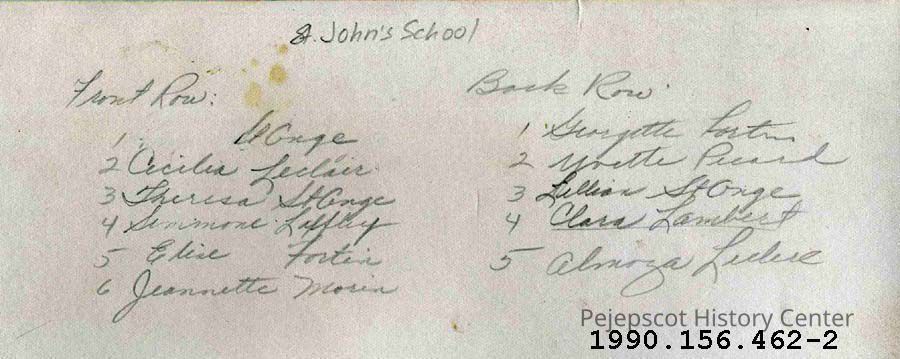 St. John's School
Front Row:
1. St Onge
2 Cecilia Leclair
3 Theresa St Onge
4 Simmone
5 Elise Fortin
6 Jeannette Morin
Back Row
1 Georgette Fortin
2 Yvette Picard
3 Lillian St Onge
4 Clara Lambert
5 Almoza
Pejepscot History Center
1990.156.462-2